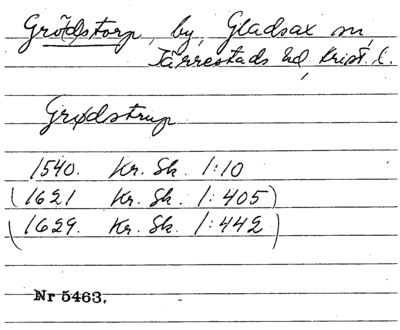 Grödstorp, by, Gladsax sn,
Järrestads hd, Krist. l.
Grødstrup
1540. Kr. Sk. 1:10
(1621 Kr. Sk. 1:405)
(1629. Kr. Sk. 1:442)
Nr 5463.